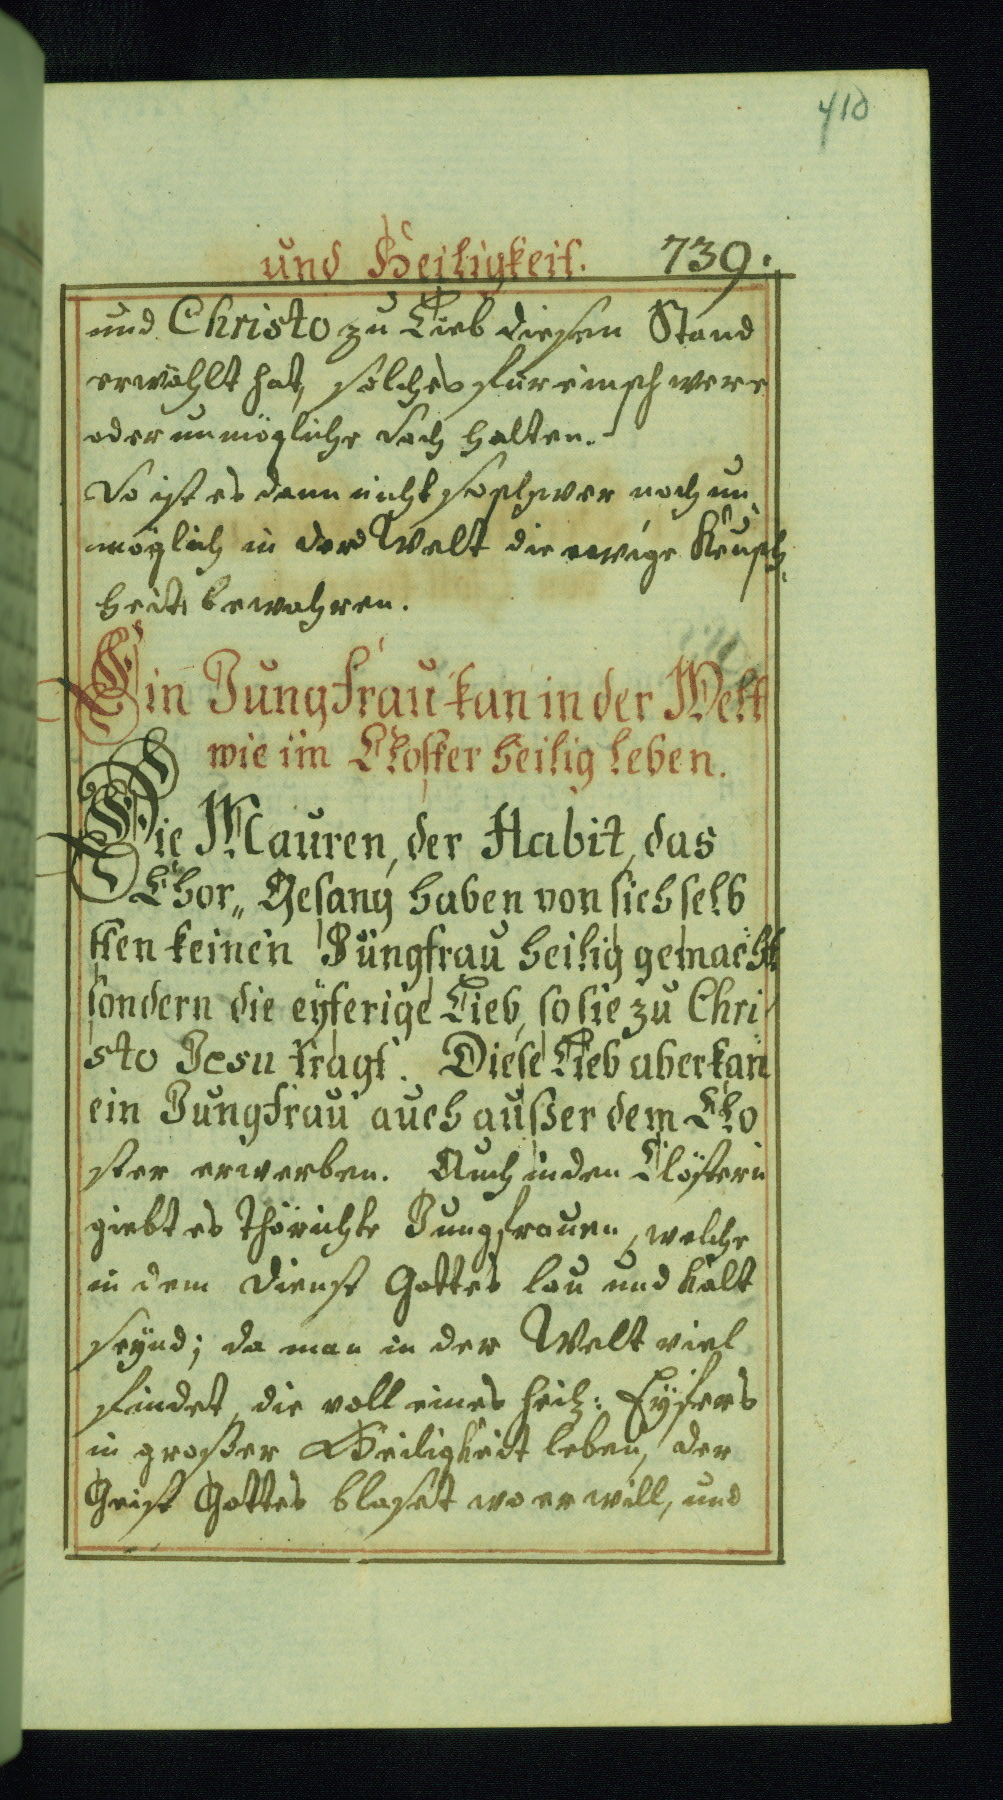 410
und Heiligkeit. 739.
und Christo zu Lieb diesen Stand
erwöhlt hat, solches für ein schwere
oder unmögliche Sach halten.
So ist es dann nicht so schwer noch un
möglich in der Welt die ewige Keusch
heit bewahren.
Ein Jungfrau kan in der Welt
wie im Closter heilig leben.
Die Mauren, der Habit, das
Chor„ Gesang haben von sich selb
sten keinen Jungfrau heilig gemacht
sondern die eyferige Lieb, so sie zu Chri
sto Jesu tragt. Diese Lieb aber kan
ein Jungfrau auch außer dem Clo
ster erwerben. Auch in den Clöstern
giebt es thörichte Jungfrauen, welche
in dem Dienst Gottes lau und kalt
seynd; da man in der Welt viel
findet, die voll eines heil: Eyfers
in großer Heiligkeit leben, der
Geist Gottes blaset wo er will, und